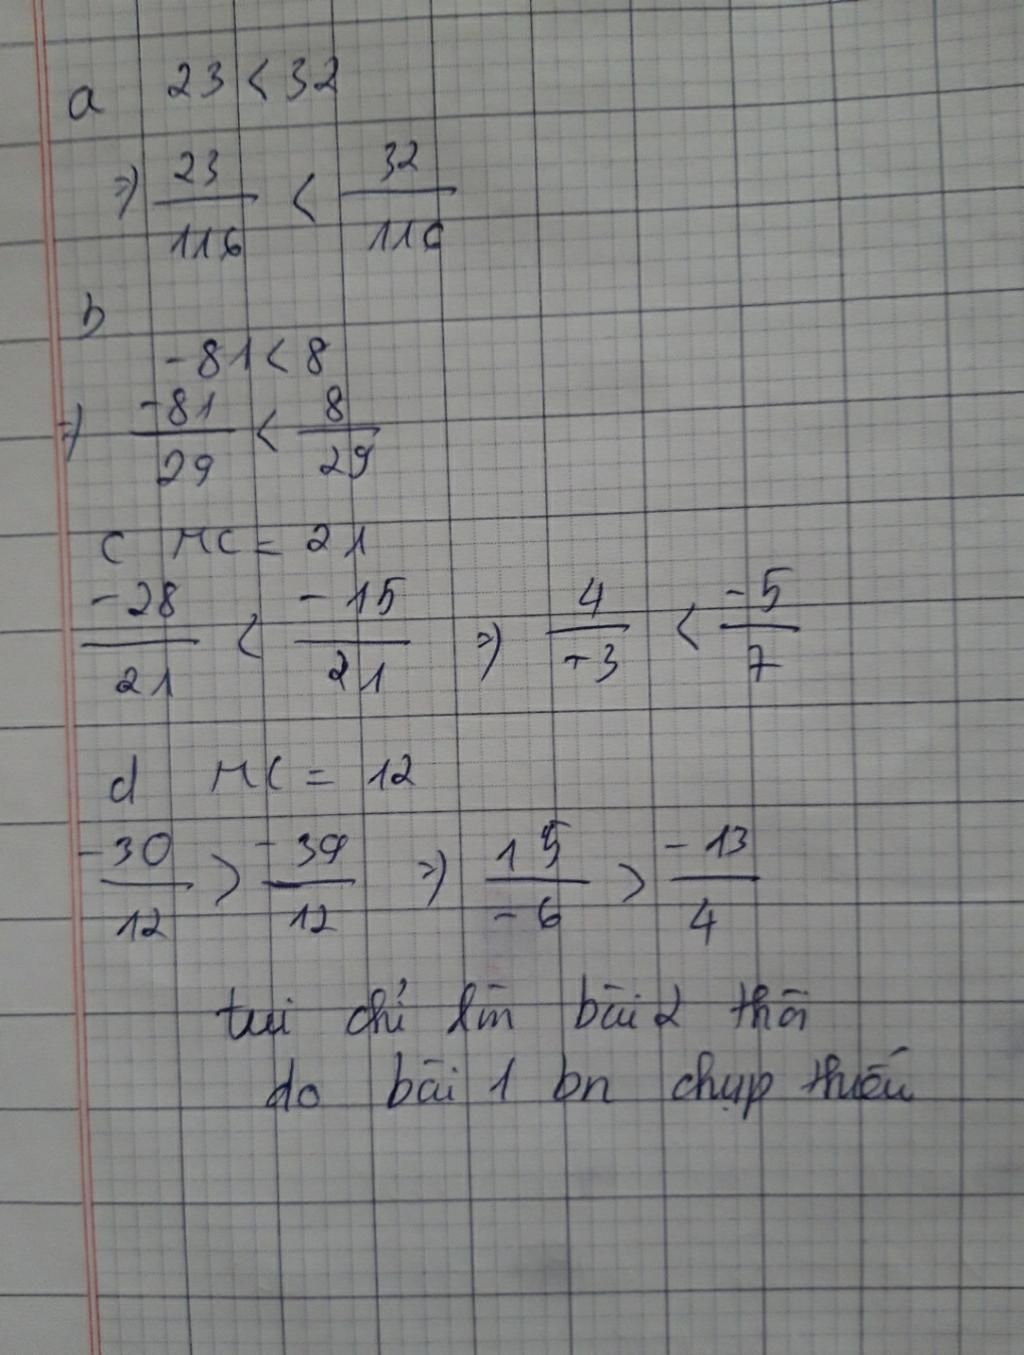 a 23 < 32
=> 23/116 < 32/116
b
-81 < 8
=> -81/29 < 8/29
c MC = 21
-28/21 < -15/21 => 4/-3 < -5/7
d MC = 12
-30/12 > -39/12 => 15/-6 > -13/4
tui chỉ làm bài 2 thôi
do bài 1 bn chụp thiếu